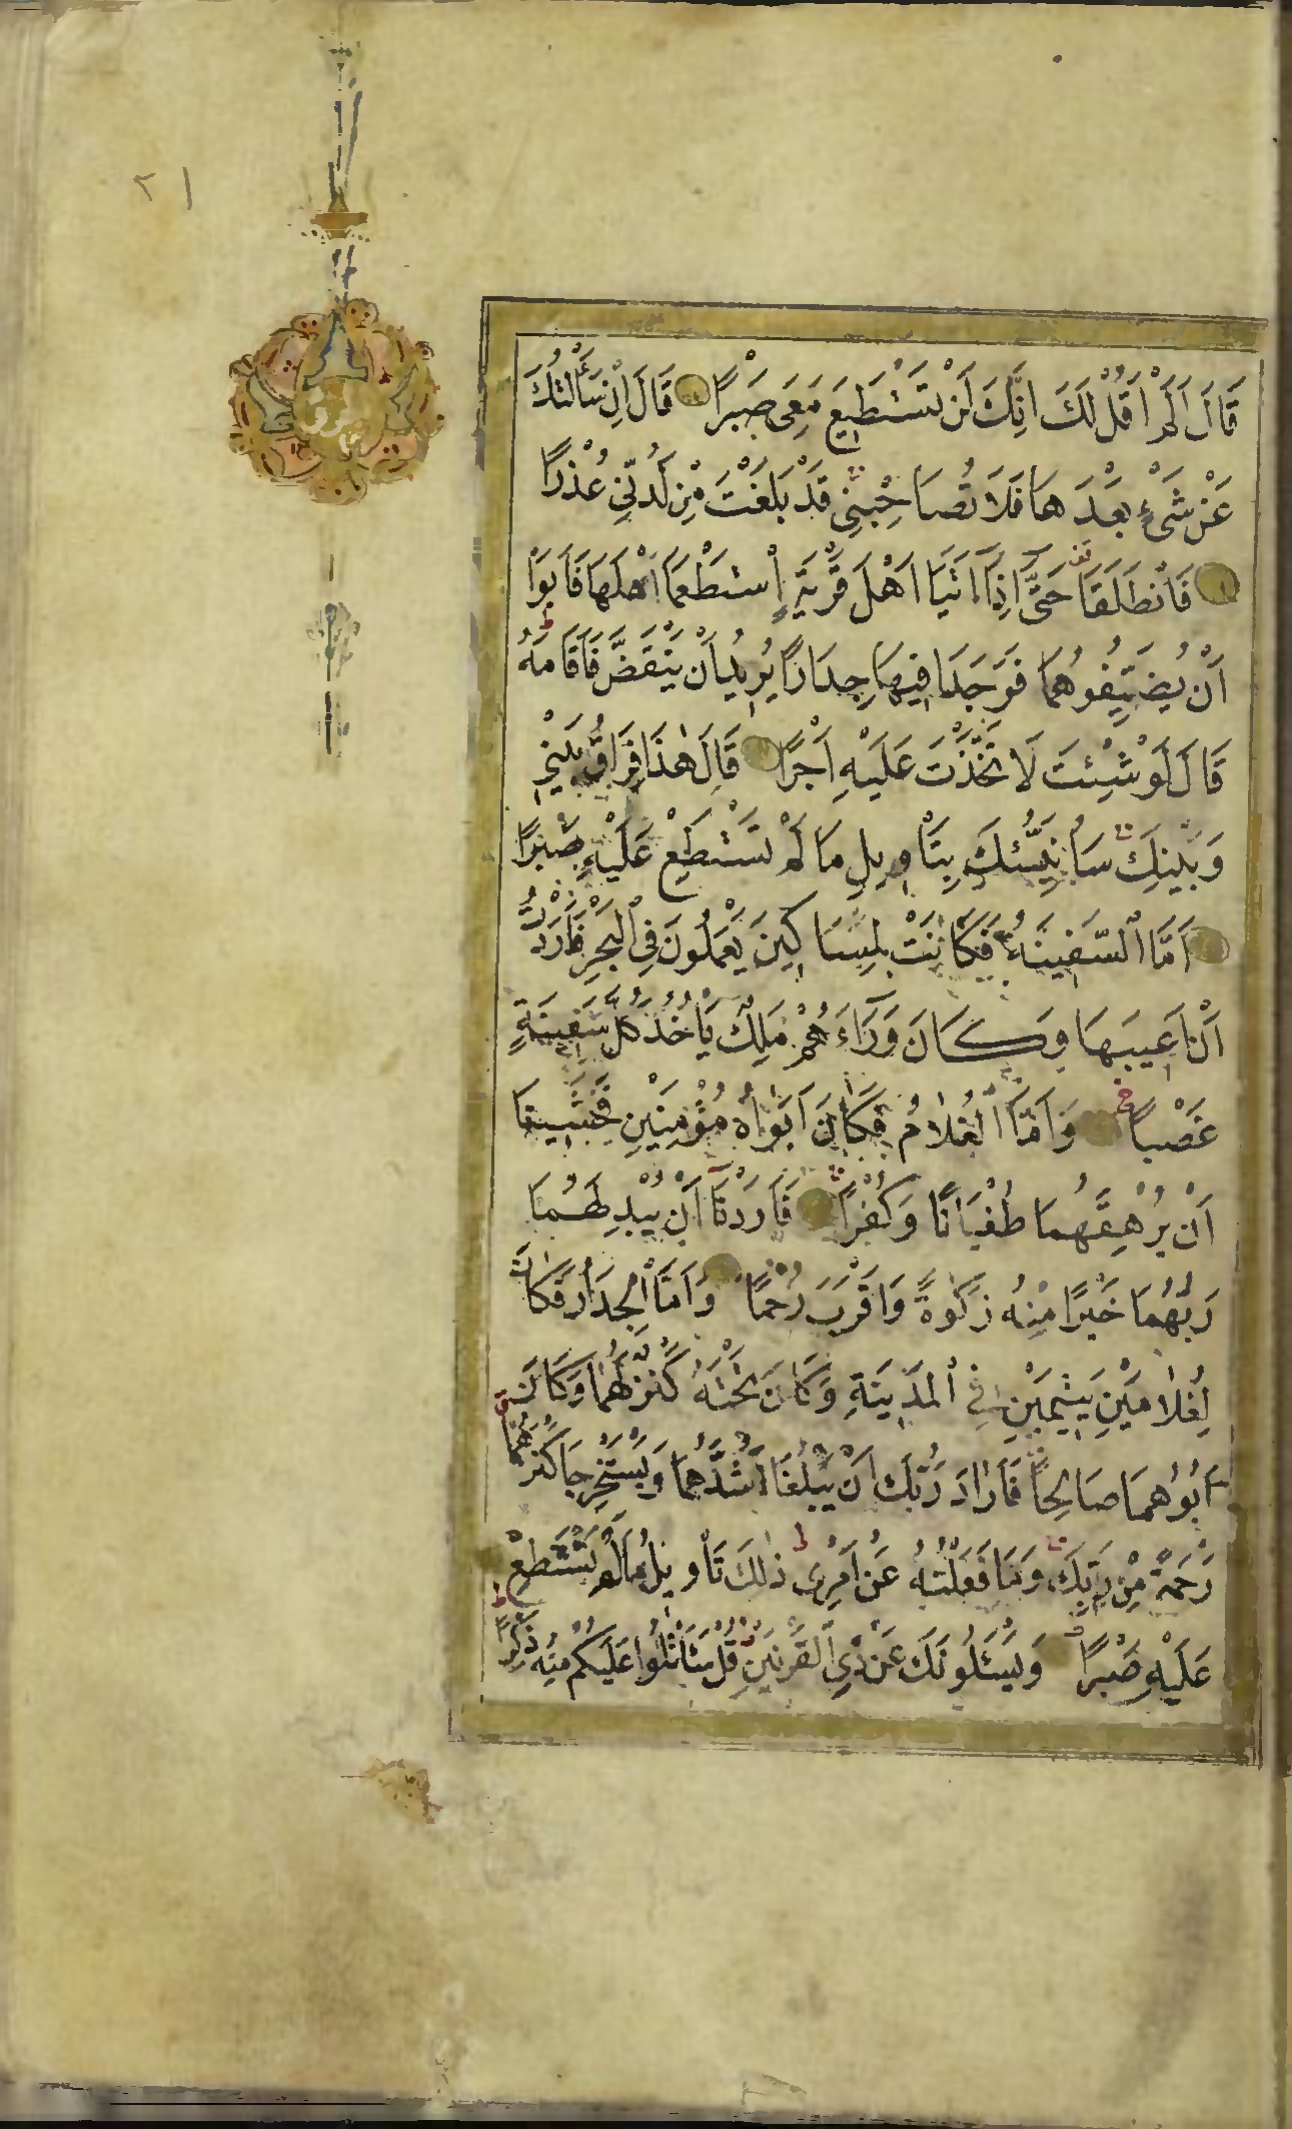 ٢١
قَالَ اَلَمْ اَقُلْ لَكَ اِنَّكَ لَنْ تَسْتَطِيعَ مَعِىَ صَبْرًا قَالَ اِنْ سَاَلْتُكَ
عَنْ شَىْءٍ بَعْدَهَا فَلَا تُصَاحِبْنِى قَدْ بَلَغْتَ مِنْ لَدُنِّى عُذْرًا
فَانْطَلَقَا حَتَّى اِذَا اَتَيَا اَهْلَ قَرْيَةٍ اِسْتَطْعَمَا اَهْلَهَا فَاَبَوْا
اَنْ يُضَيِّفُوهُمَا فَوَجَدَا فِيهَا جِدَارًا يُرِيدُ اَنْ يَنْقَضَّ فَاَقَامَهُ
قَالَ لَوْ شِئْتَ لَاتَّخَذْتَ عَلَيْهِ اَجْرًا قَالَ هٰذَا فِرَاقُ بَيْنِى
وَبَيْنِكَ سَاُنَبِّئُكَ بِتَاْوِيلِ مَا لَمْ تَسْتَطِعْ عَلَيْهِ صَبْرًا
اَمَّا ٱلسَّفِينَةُ فَكَانَتْ لِمَسَاكِينَ يَعْمَلُونَ فِى ٱلْبَحْرِ فَاَرَدْتُ
اَنْ اَعِيبَهَا وَكَانَ وَرَآءَهُمْ مَلِكٌ يَاْخُذُ كُلَّ سَفِينَةٍ
غَصْبًا وَاَمَّا ٱلْغُلَامُ فَكَانَ اَبَوَاهُ مُؤْمِنَيْنِ فَخَشِينَا
اَنْ يُرْهِقَهُمَا طُغْيَانًا وَكُفْرًا فَاَرَدْنَا اَنْ يُبْدِلَهُمَا
رَبُّهُمَا خَيْرًا مِنْهُ زَكٰوةً وَاَقْرَبَ رُحْمًا وَاَمَّا ٱلْجِدَارُ فَكَانَ
لِغُلَامَيْنِ يَتِيمَيْنِ فِى ٱلْمَدِينَةِ وَكَانَ تَحْتَهُ كَنْزٌ لَهُمَا وَكَانَ
اَبُوهُمَا صَالِحًا فَاَرَادَ رَبُّكَ اَنْ يَبْلُغَا اَشُدَّهُمَا وَيَسْتَخْرِجَا كَنْزَهُمَا
رَحْمَةً مِنْ رَبِّكَ وَمَا فَعَلْتُهُ عَنْ اَمْرِى ذٰلِكَ تَاْوِيلُ مَا لَمْ تَسْتَطِعْ
عَلَيْهِ صَبْرًا وَيَسْـَٔلُونَكَ عَنْ ذِى ٱلْقَرْنَيْنِ قُلْ سَاَتْلُوا عَلَيْكُمْ مِنْهُ ذِكْرًا